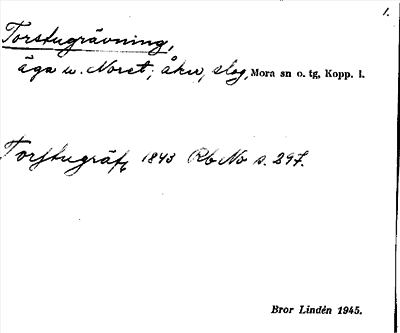 1.
Torstugrävning,
äga u. Noret; åker, slog, Mora sn o. tg, Kopp. l.
Torstugräf, 1843 Rb No s. 297.
Bror Lindén 1945.